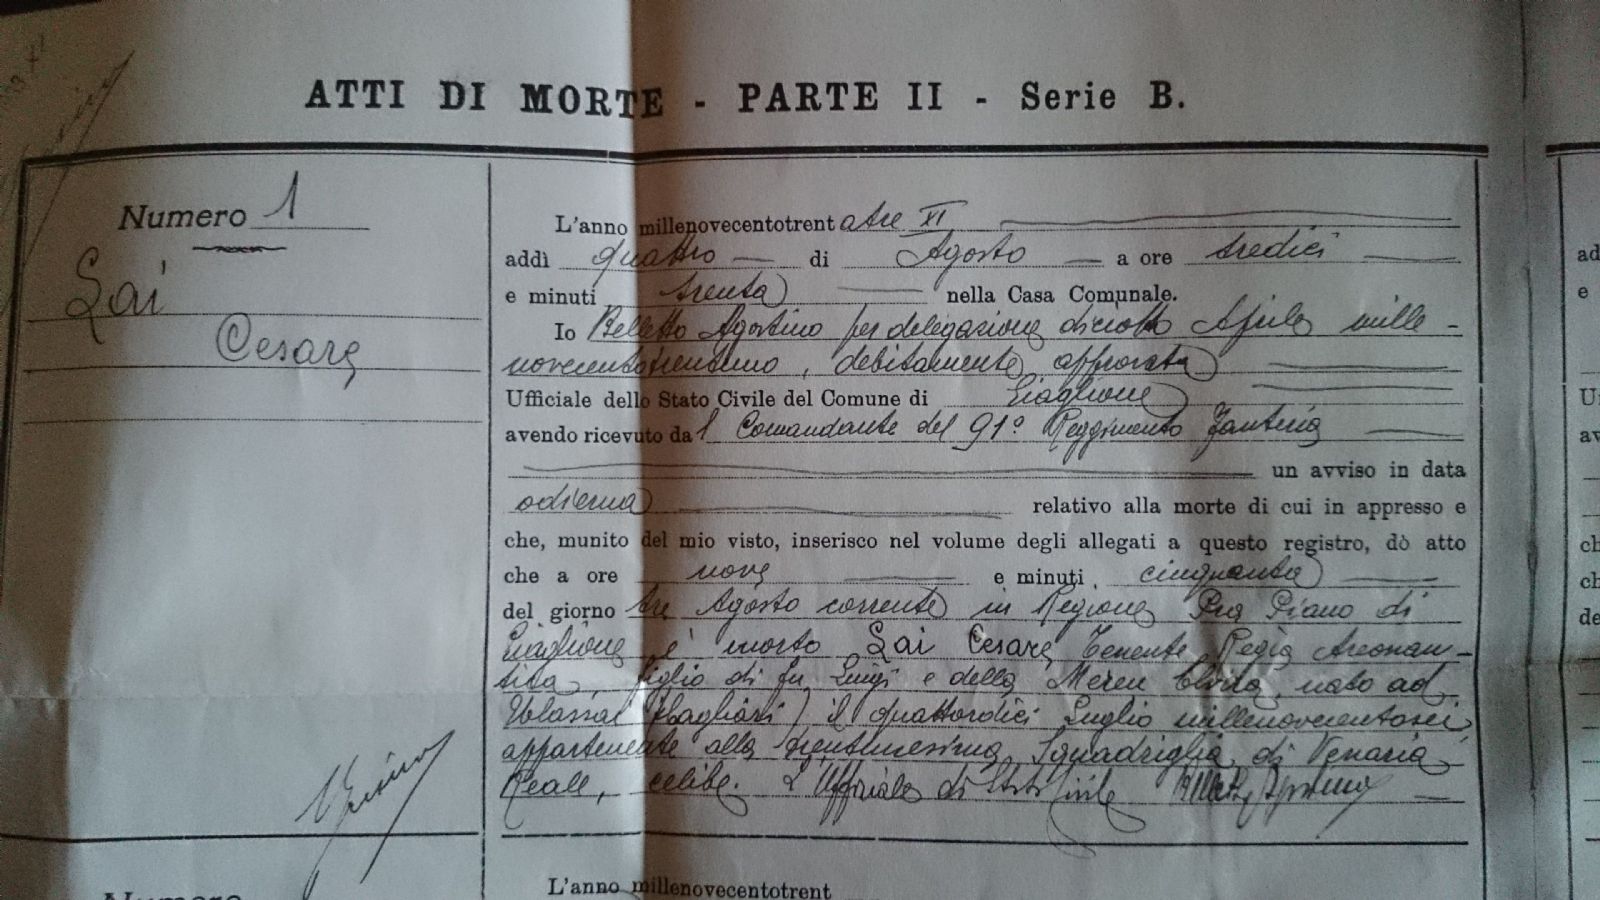 ATTI DI MORTE - PARTE II - Serie B.
Numero 1
Lai
Cesare
L'anno millenovecentotrentatre XI
addì quattro di Agosto a ore tredici
e minuti trenta nella Casa Comunale.
Io Belletto Agostino per delegazione diciotto Aprile mille-
novecentotrentuno, debitamente approvata
Ufficiale dello Stato Civile del Comune di Giaglione
avendo ricevuto dal Comandante del 91° Reggimento Fanteria
un avviso in data
odierna relativo alla morte di cui in appresso e
che, munito del mio visto, inserisco nel volume degli allegati a questo registro, dò atto
che a ore nove e minuti cinquanta
del giorno tre Agosto corrente in Regione Piano di
Giaglione è morto Lai Cesare Tenente Regia Areonau-
tica, figlio di fu Luigi e della Mereu nato ad
(Cagliari) il quattordici Luglio millenovecentosei,
appartenente alla Squadriglia di Venaria
Reale, celibe. L'Ufficiale di Stato Civile Belletto Agostino
Numero
L'anno millenovecentotrent
ad
e